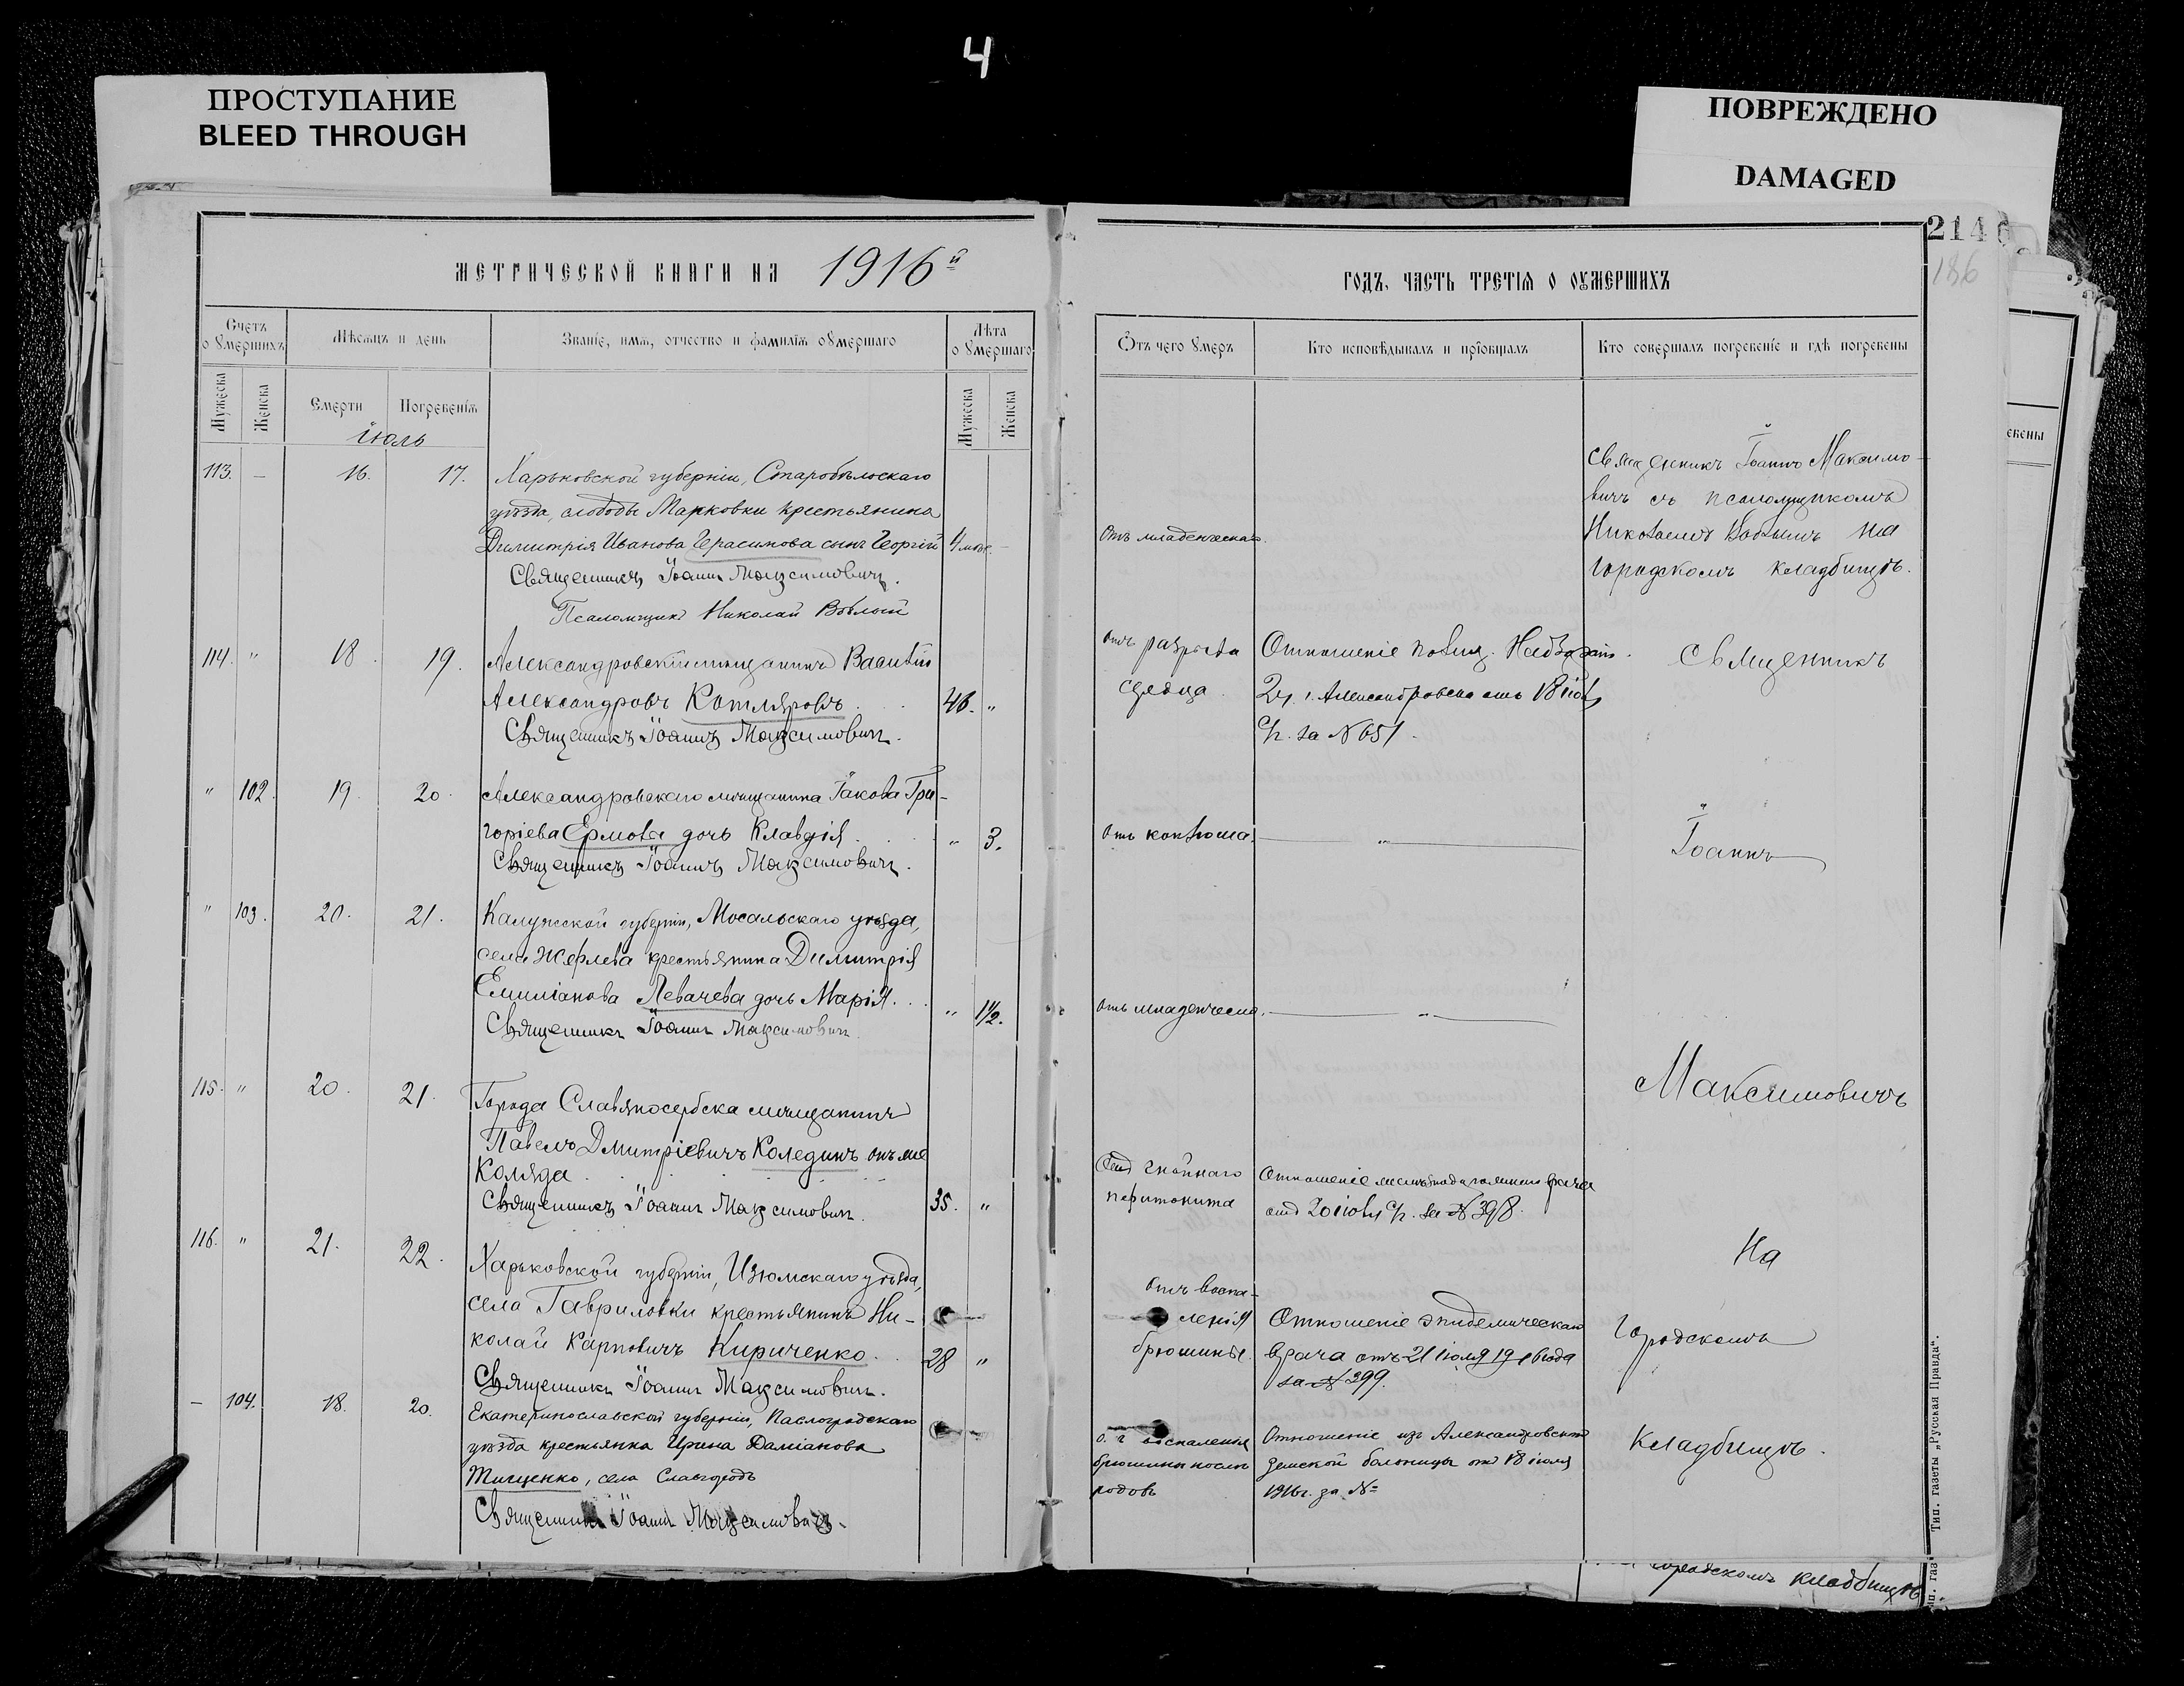 4
ПРОСТУПАНИЕ
BLEED THROUGH
ПОВРЕЖДЕНО
DAMAGED
214
186
МЕТРИЧЕСКОЙ КНИГИ НА 1916й
Счетъ о умершихъ
Мѣсяцъ и день
Званіе, имя, отчество и фамилія умершаго
Лѣта о умершаго
Мужеска
Женска
Смерти
Погребенія
Мужеска
Женска
іюль
113. – 16. 17. Харьковской губерніи, Старобѣльскаго
уѣзда, слободы Марковки крестьянина
Димитрія Иванова Герасимова сынъ Георгій 4 –
Священникъ Іоаннъ Максимовичъ.
Псаломщикъ Николай Бѣлый
114. " 18. 19. Александровскій мѣщанинъ
Александровъ Котляровъ . . 46. "
Священникъ Іоаннъ Максимовичъ.
" 102. 19. 20. Александровскаго мѣщанина Іакова Гри-
горіева Ермова дочь Клавдія . . " 3.
Священникъ Іоаннъ Максимовичъ.
" 103. 20. 21. Калужской губерніи, Мосальскаго уѣзда,
села Жерлева крестьянина Димитрія
Емиліанова Левачева дочь Марія . . " 1½.
Священникъ Іоаннъ Максимовичъ.
115. " 20. 21. Города Славяносербска мѣщанинъ
Павелъ Дмитріевичъ Колединъ онъ же
Коляда . . . . .
Священникъ Іоаннъ Максимовичъ. 35. "
116. " 21. 22. Харьковской губерніи, Изюмскаго уѣзда,
села Гавриловки крестьянинъ Ни-
колай Карповичъ Кириченко . . 28 "
Священникъ Іоаннъ Максимовичъ.
– 104. 18. 20. Екатеринославской губерніи, Павлоградскаго
уѣзда крестьянка Ирина Даміанова
Тищенко, села Славгородъ
Священникъ Іоаннъ Максимовичъ.
ГОДЪ, ЧАСТЬ ТРЕТІЯ О УМЕРШИХЪ
Отъ чего умеръ
Кто исповѣдывалъ и пріобщалъ
Кто совершалъ погребеніе и гдѣ погребены
Священникъ Іоаннъ Максимо-
вичъ съ псаломщикомъ
Николаемъ Бѣлымъ на
городскомъ кладбищѣ.
Отъ младенческаго.
отъ разрыва
сердца.
Отношеніе полиц.
2 ч. г. Александровска отъ 18 іюля
с/г. за № 651.
Священникъ
Отъ коклюша. "
Іоаннъ
Отъ младенческаго. "
Максимовичъ
гнойнаго
перитонита
Отношеніе врача
отъ 20 іюля с/г. за № 398.
На
отъ воспа-
ленія
брюшины.
Отношеніе эпидемическаго
врача отъ 21 іюля 1916 года
за № 399.
городскомъ
воспаленія
брюшины послѣ
родовъ
Отношеніе изъ Александровской
земской больницы отъ 18 іюля
1916 г. за №
кладбищѣ.
Тип. газеты „Русская Правда“.
городскомъ кладбищѣ
ип. газ
ебены